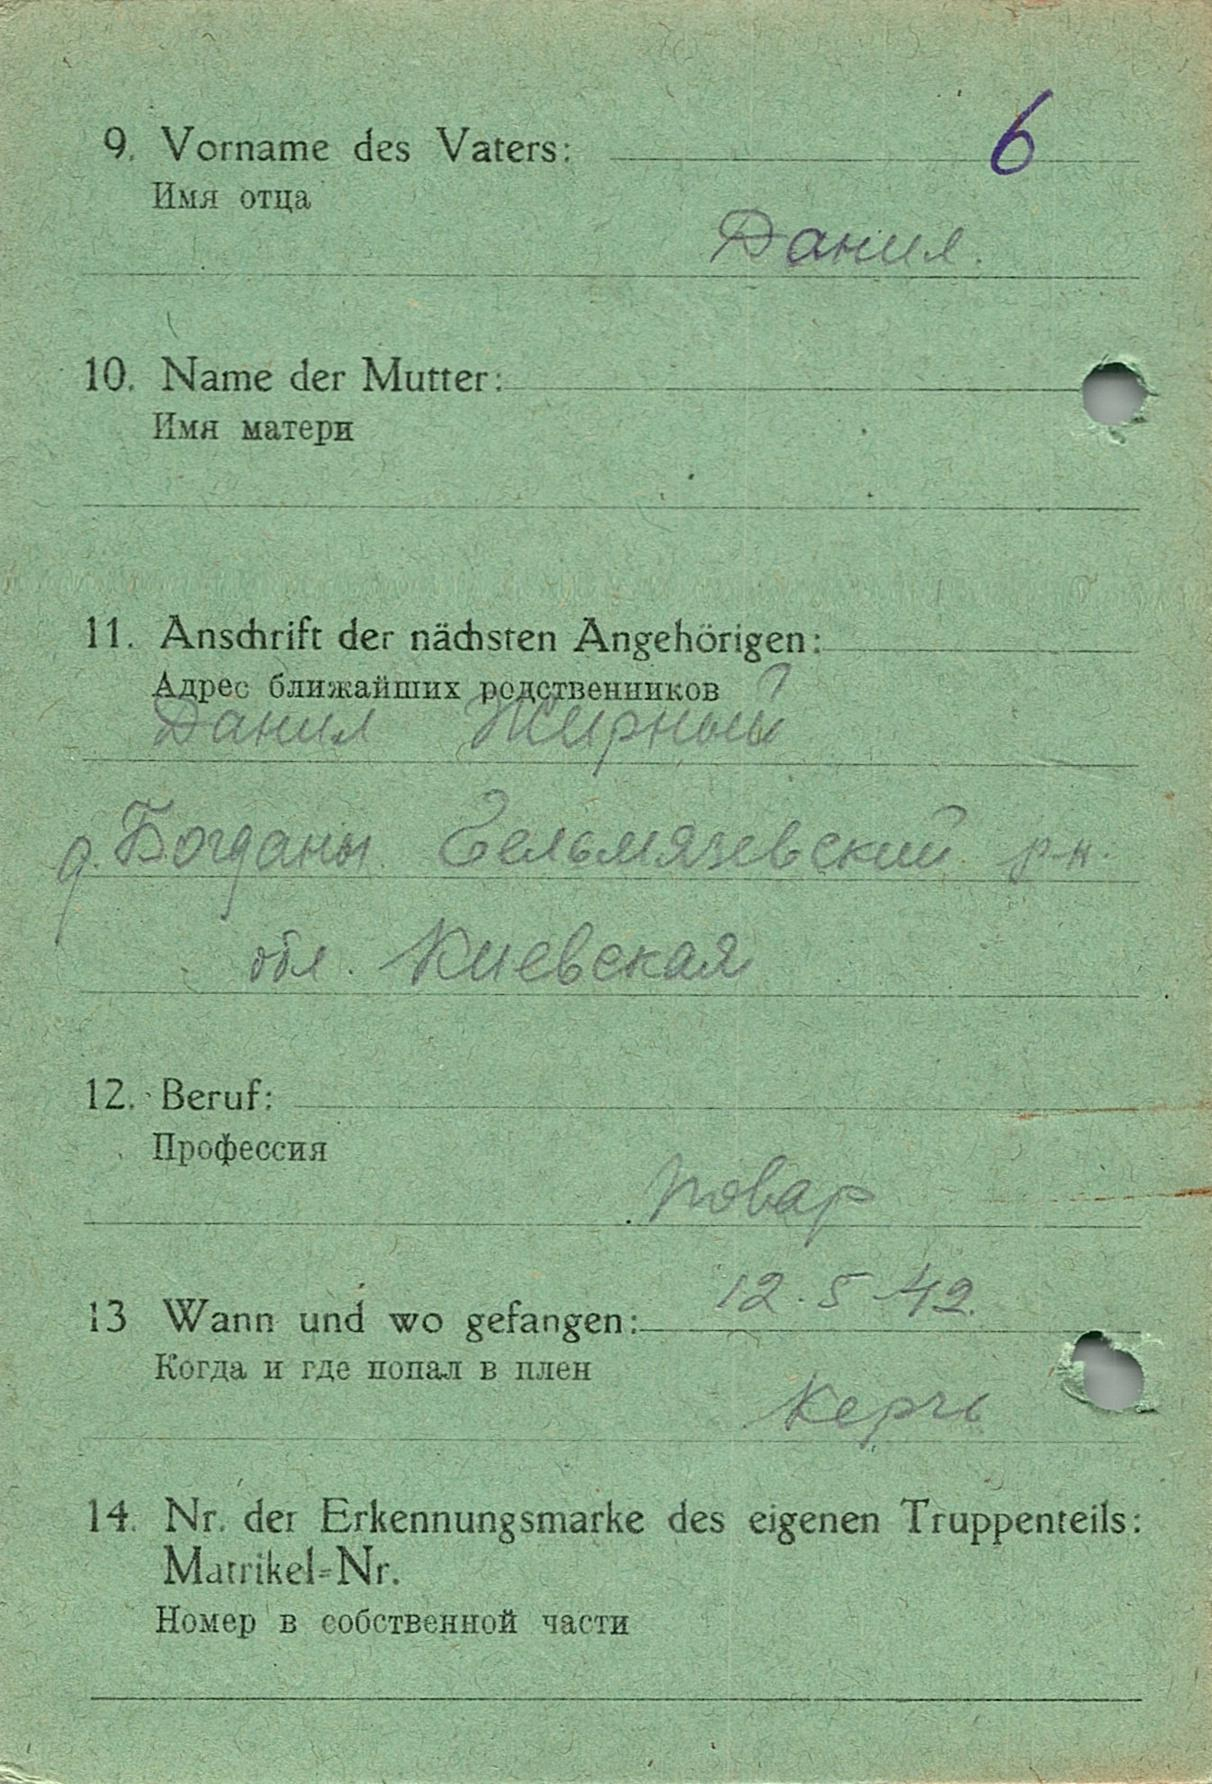 6
9. Vorname des Vaters:
Имя отца
Данил.
10. Name der Mutter:
Имя матери
11. Anschrift der nächsten Angehörigen:
Адрес ближайших родственников
Данил Жирный
д. Богданы Гельмязевский р-н.
обл. Киевская
12. Beruf:
Профессия
повар
12.5 42.
13 Wann und wo gefangen:
Когда и где попал в плен
Керчь
14. Nr. der Erkennungsmarke des eigenen Truppenteils:
Matrikel=Nr.
Номер в собственной части